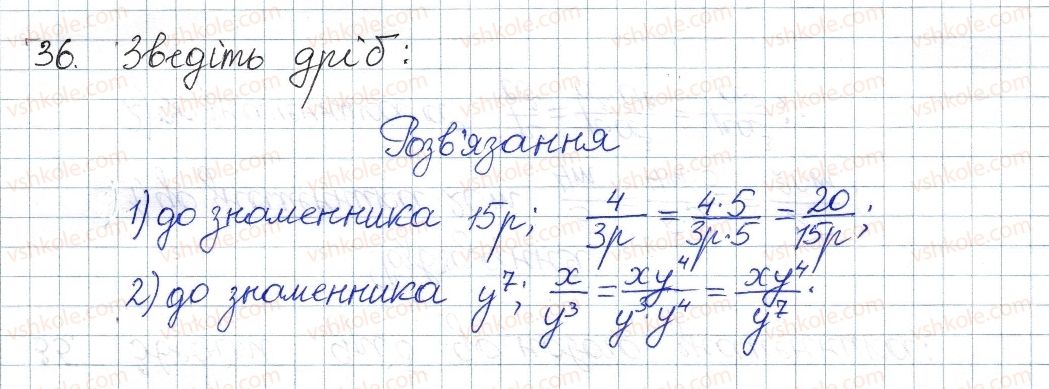 36. Зведіть дріб:
Розв'язання
1) до знаменника 15p; 4/3p = 4·5/3p·5 = 20/15p;
2) до знаменника y⁷; x/y³ = xy⁴/y³·y⁴ = xy⁴/y⁷.